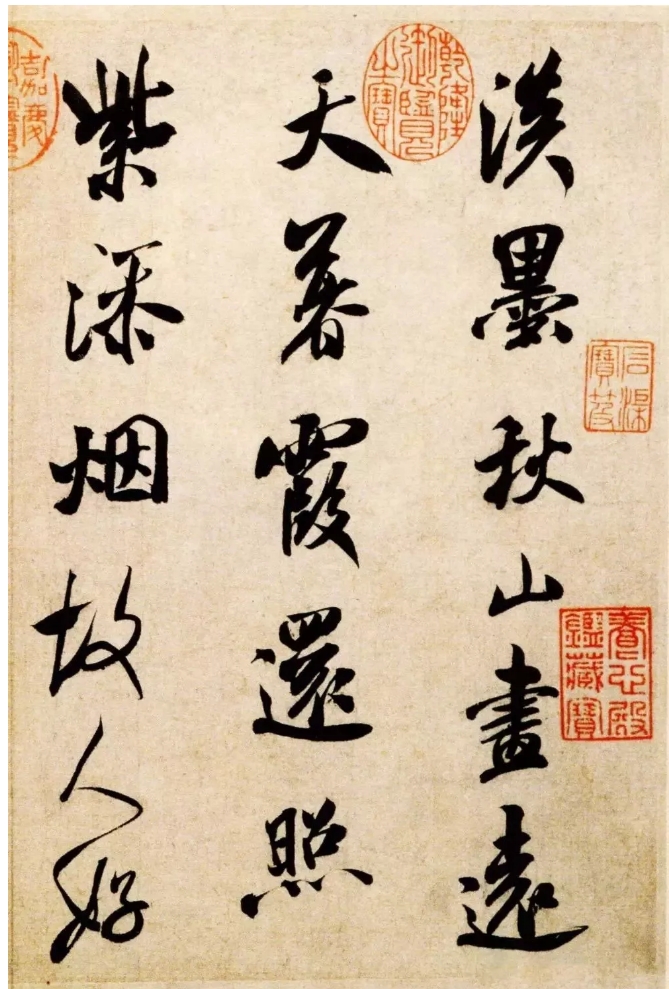 淡墨秋山畫遠
天暮霞還照
紫添烟故人好
乾隆
御覽
之寶
石渠
寶笈
養心殿
鑑藏寶
嘉慶